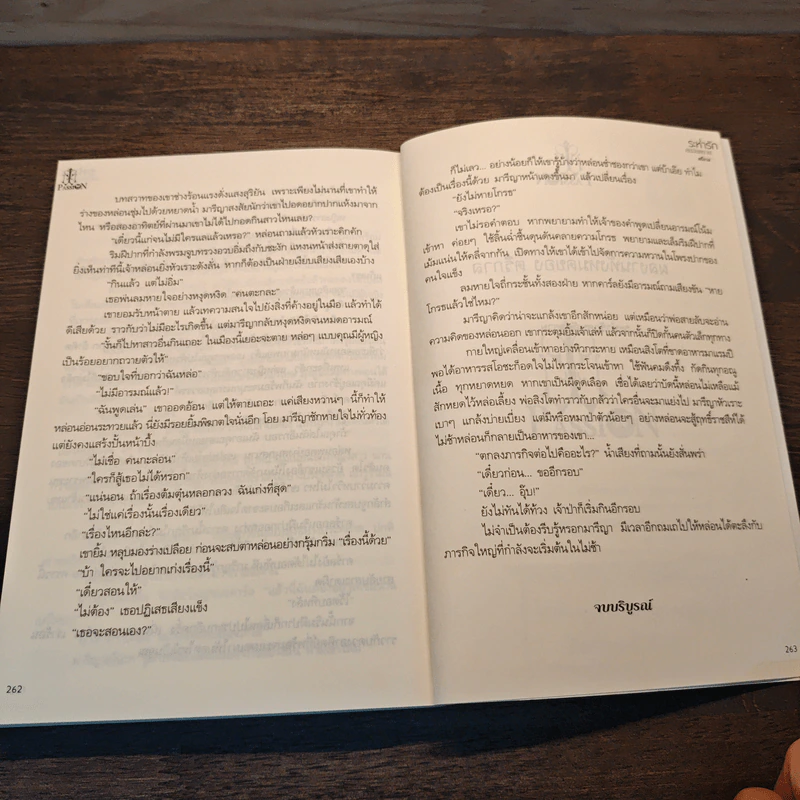 PASSION
บทสวาทของเขาช่างร้อนแรงดั่งแสงสุริยัน เพราะเพียงไม่นานที่เขาทำให้
ร่างของหล่อนชุ่มไปด้วยหยาดน้ำ มารีญาสงสัยนักว่าเขาไปอดอยากปากแห้งมาจาก
ไหน หรือสองอาทิตย์ที่ผ่านมาเขาไม่ได้ไปกอดกับสาวไหนเลย?
“เดี๋ยวนี้แก่จนไม่มีใครแลแล้วเหรอ?” หล่อนถามแล้วหัวเราะคิกคัก
ริมฝีปากที่กำลังพรมจูบทรวงอวบอิ่มถึงกับชะงัก แหงนหน้าส่งสายตาดุใส่
ยิ่งเห็นท่าทีนี้เจ้าหล่อนยิ่งหัวเราะดังลั่น หากก็ต้องเป็นฝ่ายเงียบเสียงเสียเองบ้าง
“กินแล้ว แต่ไม่อิ่ม”
เธอพ่นลมหายใจอย่างหงุดหงิด “คนตะกละ”
เขายอมรับหน้าตาย แล้วเทความสนใจไปยังสิ่งที่ค้างอยู่ในมือ แล้วทำได้
ดีเสียด้วย ราวกับว่าไม่มีอะไรเกิดขึ้น แต่มารีญากลับหงุดหงิดจนหมดอารมณ์
“งั้นก็ไปหาสาวอื่นกินเถอะ ในเมืองนี้เยอะจะตาย หล่อๆ แบบคุณมีผู้หญิง
เป็นร้อยอยากถวายตัวให้”
“ขอบใจที่บอกว่าฉันหล่อ”
“ไม่มีอารมณ์แล้ว!”
“ฉันพูดเล่น” เขาออดอ้อน แต่ให้ตายเถอะ แค่เสียงหวานๆ นี้ก็ทำให้
หล่อนอ่อนระทวยแล้ว นี่ยังมีรอยยิ้มพิฆาตใจนั่นอีก โอย มารีญาชักหายใจไม่ทั่วท้อง
แต่ยังคงแสร้งปั้นหน้าบึ้ง
“ไม่เชื่อ คนกะล่อน”
“ใครก็สู้เธอไม่ได้หรอก”
“แน่นอน ถ้าเรื่องต้มตุ๋นหลอกลวง ฉันเก่งที่สุด”
“ไม่ใช่แค่เรื่องนั้นเรื่องเดียว”
“เรื่องไหนอีกล่ะ?”
เขายิ้ม หลุบมองร่างเปลือย ก่อนจะสบตาหล่อนอย่างกรุ้มกริ่ม “เรื่องนี้ด้วย”
“บ้า ใครจะไปอยากเก่งเรื่องนี้”
“เดี๋ยวสอนให้”
“ไม่ต้อง” เธอปฏิเสธเสียงแข็ง
“เธอจะสอนเอง?”
262
ระห่ำรัก
ก็ไม่เลว... อย่างน้อยก็ให้เขารู้บ้างว่าหล่อนช่ำชองกว่าเขา แต่บ้าเอ๊ย ทำไม
ต้องเป็นเรื่องนี้ด้วย มารีญาหน้าแดงขึ้นมา แล้วเปลี่ยนเรื่อง
“ยังไม่หายโกรธ”
“จริงเหรอ?”
เขาไม่รอคำตอบ หากพยายามทำให้เจ้าของคำพูดเปลี่ยนอารมณ์โน้ม
เข้าหา ค่อยๆ ใช้ลิ้นฉ่ำชื้นดุนดันคลายความโกรธ พยายามและเล็มริมฝีปากที่
เม้มแน่นให้คลี่จากกัน เปิดทางให้เขาได้เข้าไปจัดการความหวานในโพรงปากของ
คนใจแข็ง
ลมหายใจถี่กระชั้นทั้งสองฝ่าย หากคาร์ลยังมีอารมณ์ถามเสียงซัน “หาย
โกรธแล้วใช่ไหม?”
มารีญาคิดว่าน่าจะแกล้งเขาอีกสักหน่อย แต่เหมือนว่าพ่อสายลับจะอ่าน
ความคิดของหล่อนออก เขากระตุมยิ้มเจ้าเล่ห์ แล้วจากนั้นก็ปิดกั้นคนตัวเล็กทุกทาง
กายใหญ่เคลื่อนเข้าหาอย่างหิวกระหาย เหมือนสิงโตที่ขาดอาหารมาแรมปี
พอได้อาหารรสโอชะก็อดใจไม่ไหวกระโจนเข้าหา ใช้ฟันคมดึงทึ้ง กัดกินทุกอณู
เนื้อ ทุกหยาดหยด หากเขาเป็นผีดูดเลือด เชื่อได้เลยว่าบัดนี้หล่อนไม่เหลือแม้
สักหยดไว้หล่อเลี้ยง พ่อสิงโตทำราวกับกลัวว่าใครอื่นจะมาแย่งไป มารีญาหัวเราะ
เบาๆ แกล้งบ่ายเบี่ยง แต่มีหรือหมาป่าตัวน้อยๆ อย่างหล่อนจะสู้ฤทธิ์ราชสีห์ได้
ไม่ช้าหล่อนก็กลายเป็นอาหารของเขา...
“ตกลงภารกิจต่อไปคืออะไร?” น้ำเสียงที่ถามนั้นยังสั่นพร่า
“เดี๋ยวก่อน... ขออีกรอบ”
“เดี๋ยว... อุ๊บ!”
ยังไม่ทันได้ท้วง เจ้าป่าก็เริ่มกินอีกรอบ
ไม่จำเป็นต้องรีบรู้หรอกมารีญา มีเวลาอีกถมเถไปให้หล่อนได้ตะลึงกับ
ภารกิจใหญ่ที่กำลังจะเริ่มต้นในไม่ช้า
จบบริบูรณ์
263